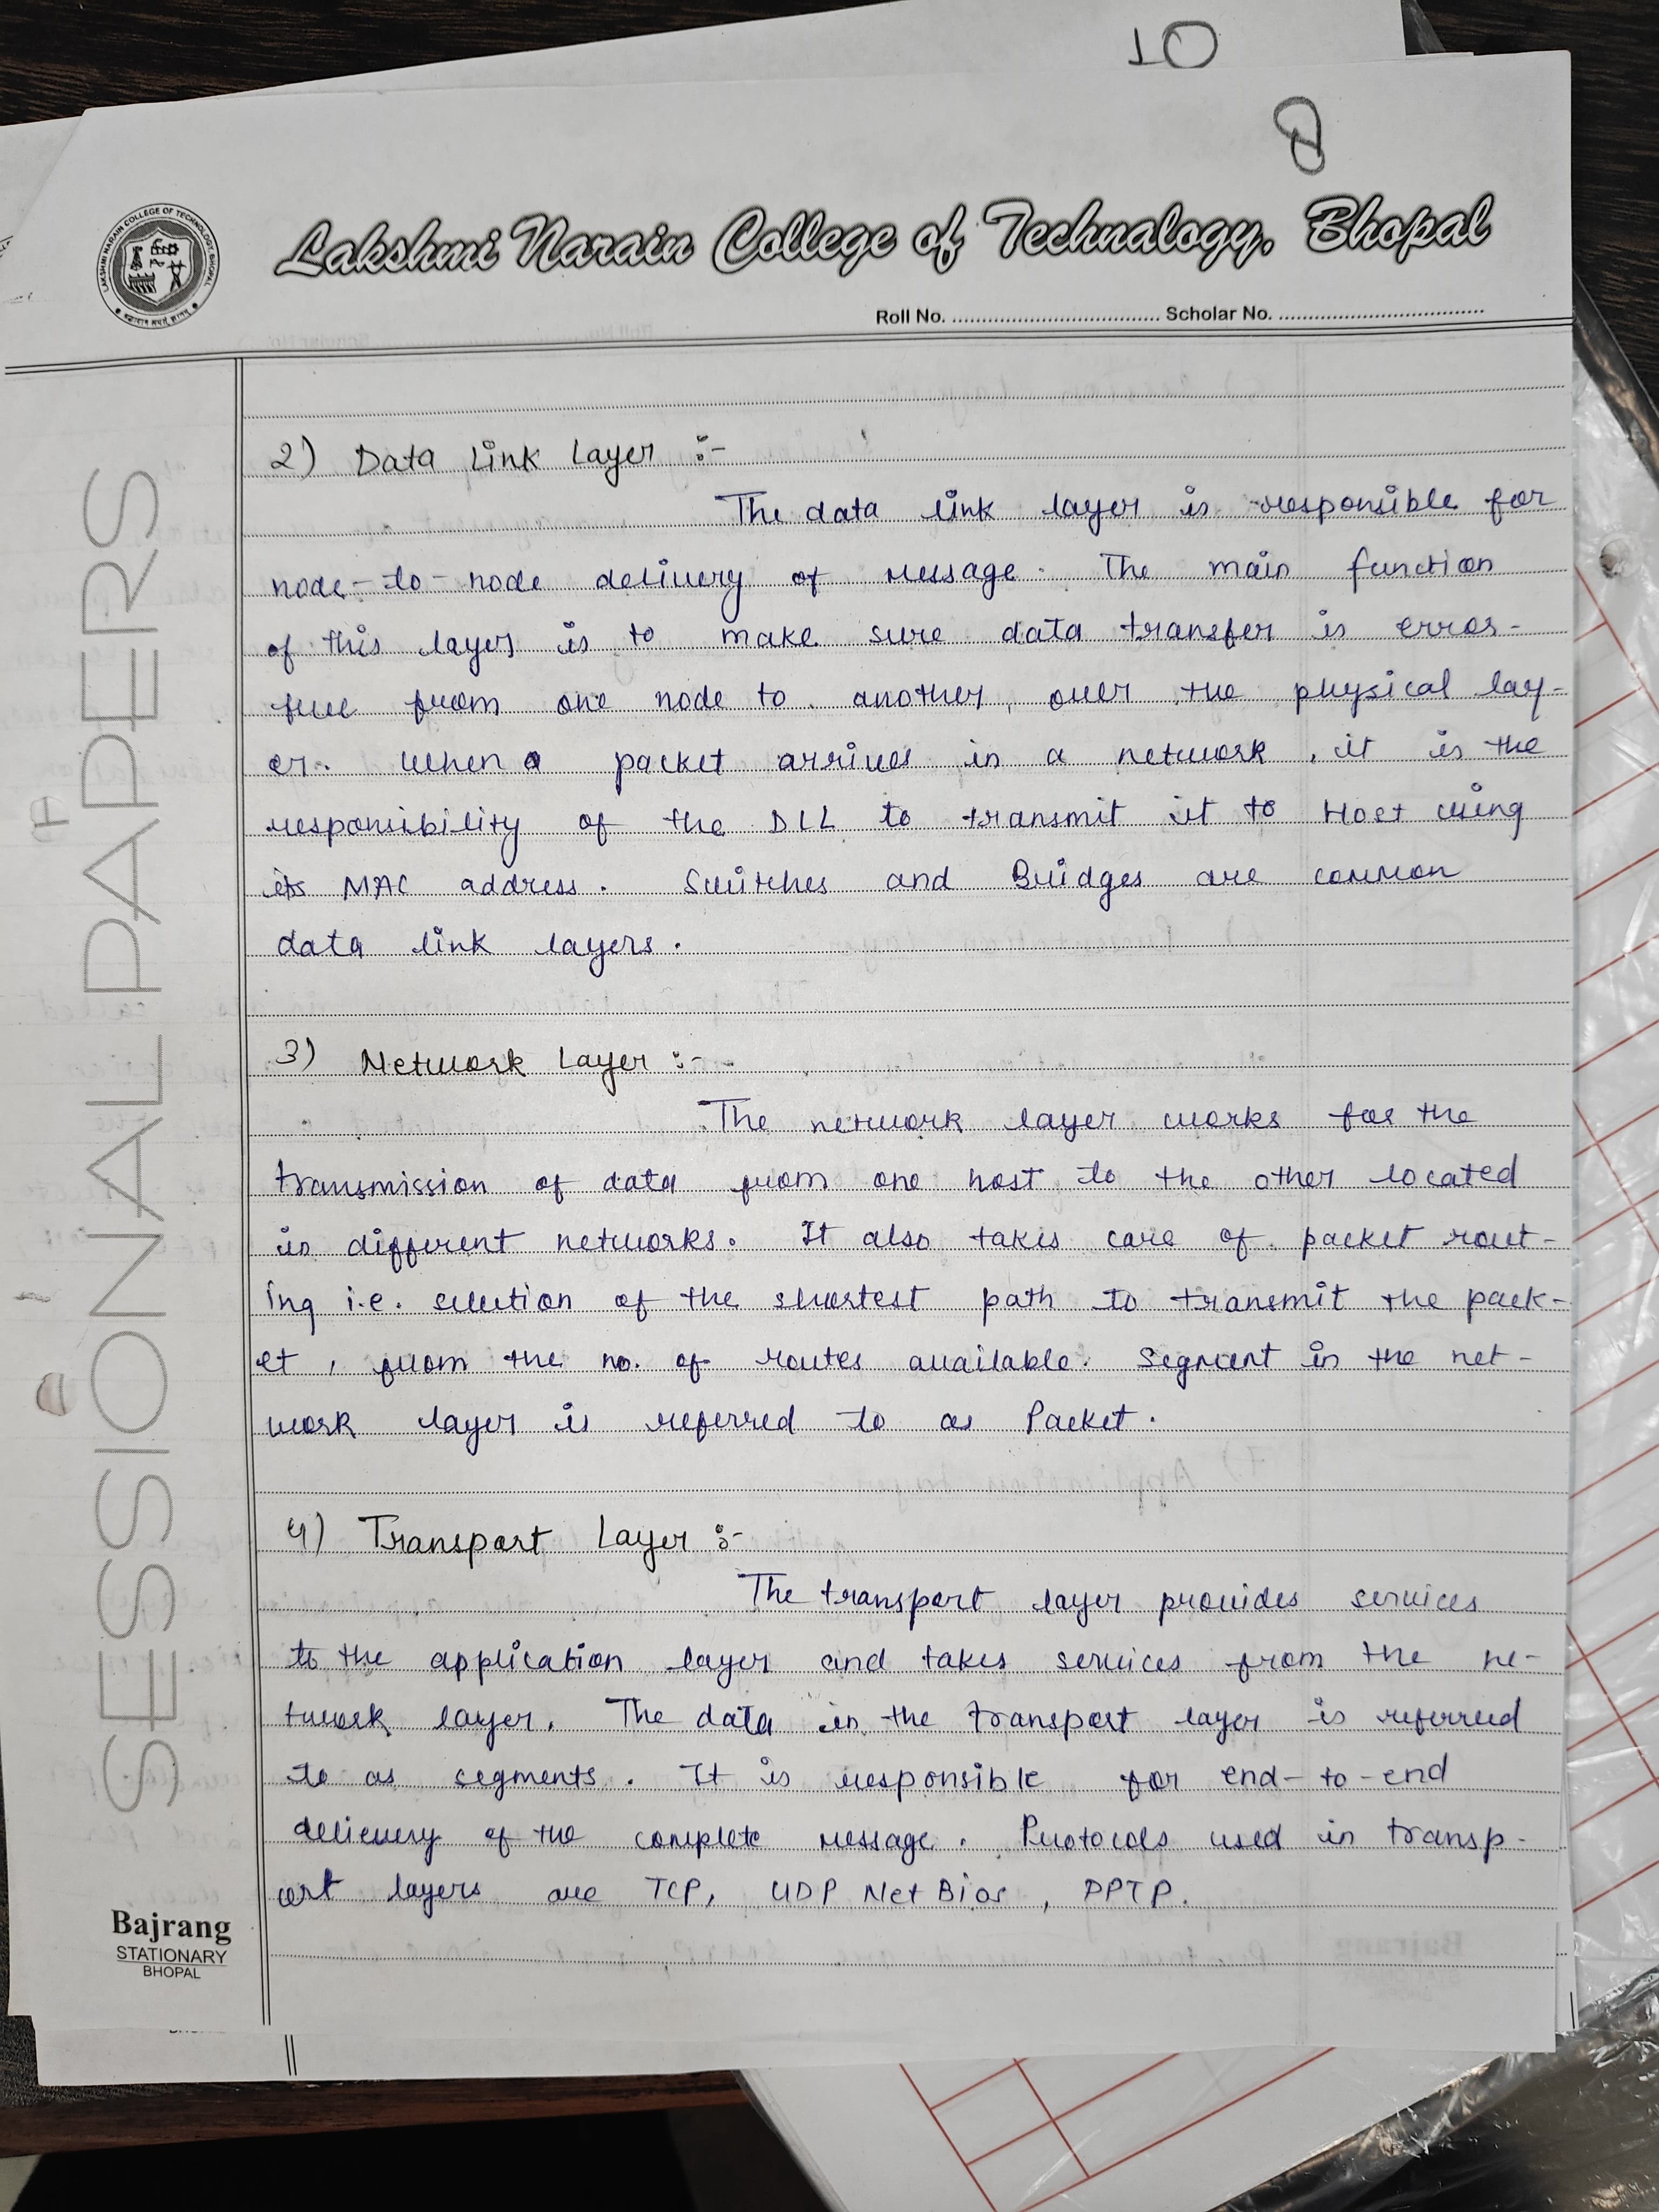 10
8
Lakshmi Narain College of Technalogy, Bhopal
LAKSHMI NARAIN COLLEGE OF TECHNOLOGY BHOPAL
Roll No. .................................. Scholar No. ..................................
SESSIONAL PAPERS
2) Data Link Layer :-
The data link layer is responsible for
node-to-node delivery of message. The main function
of this layer is to make sure data transfer is error-
free from one node to another, over the physical lay-
er. When a packet arrives in a network, it is the
responsibility of the DLL to transmit it to Host using
its MAC address. Switches and Bridges are common
data link layers.
3) Network Layer :-
The network layer works for the
transmission of data from one host to the other located
in different networks. It also takes care of packet rout-
ing i.e. selection of the shortest path to transmit the pack-
et, from the no. of routes available. Segment in the net-
work layer is referred to as Packet.
4) Transport Layer :-
The transport layer provides services
to the application layer and takes services from the ne-
twork layer. The data in the transport layer is referred
to as segments. It is responsible for end-to-end
delievery of the complete message. Protocols used in transp-
ort layers are TCP, UDP NetBios, PPTP.
Bajrang
STATIONARY
BHOPAL